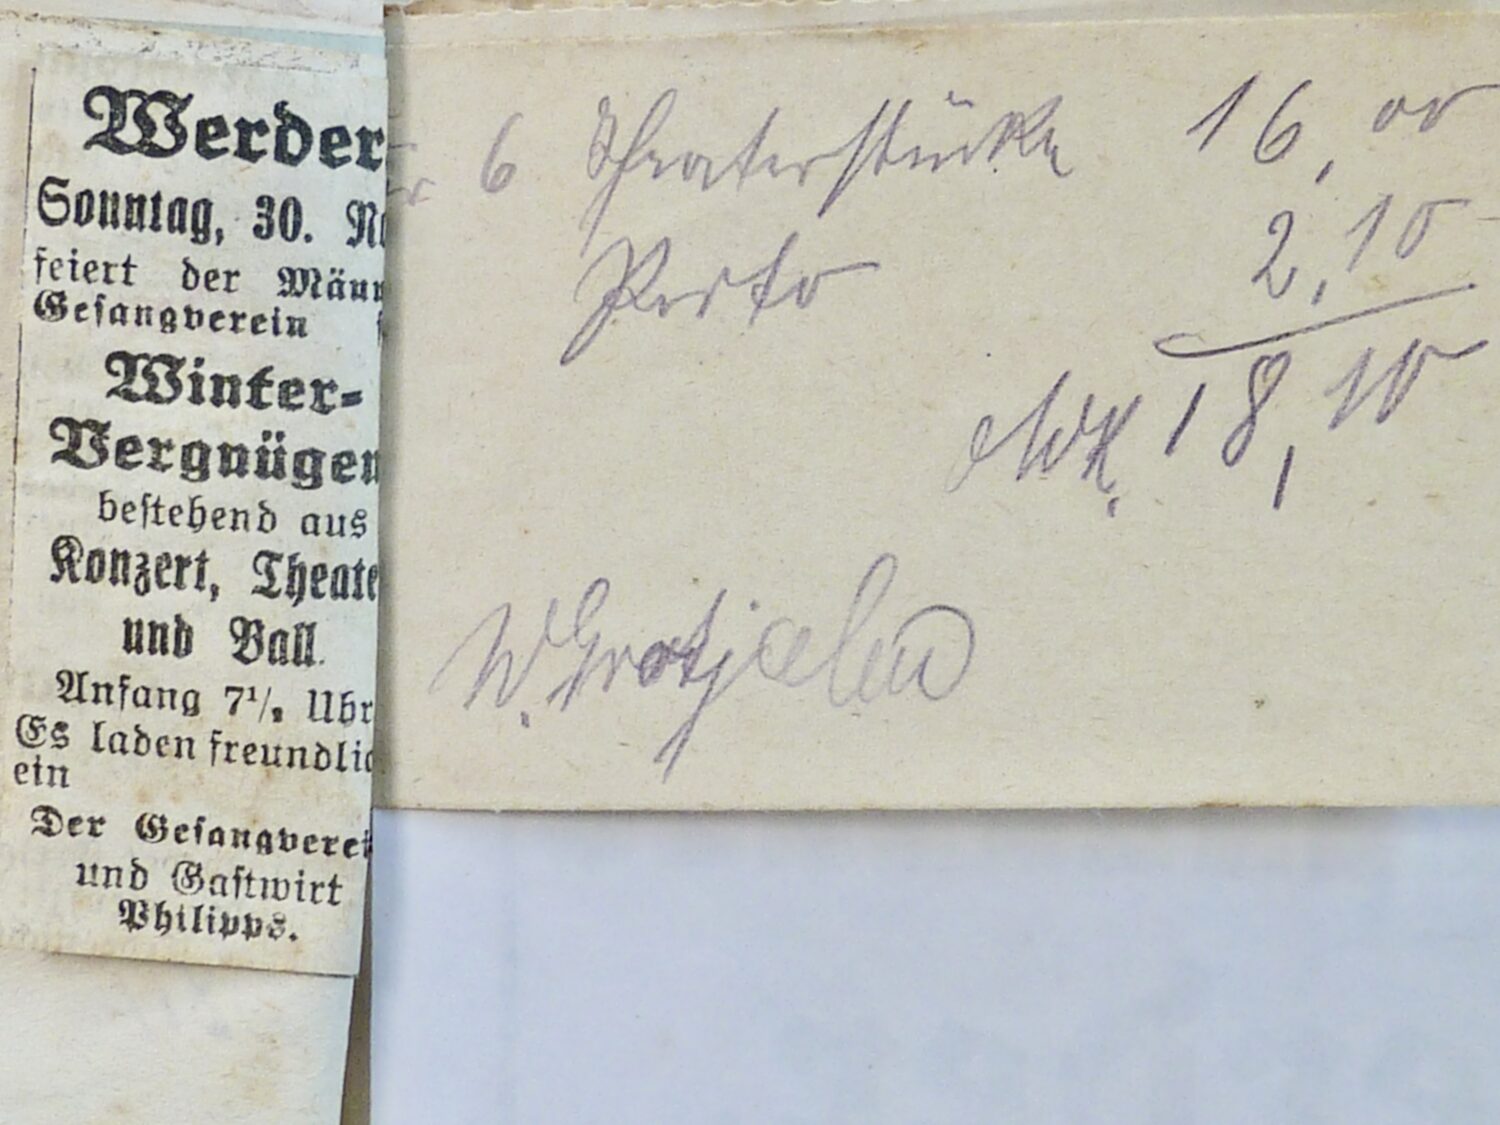 Werder
Sonntag, 30. No
feiert der Männ
Gesangverein
Winter-
Vergnügen
bestehend aus
Konzert, Theate
und Ball.
Anfang 7½ Uhr
Es laden freundlic
ein
Der Gesangverei
und Gastwirt
Philipps.
6 Theaterstücke 16,00
Porto 2,10
Mk. 18,10
W. Grotjahn